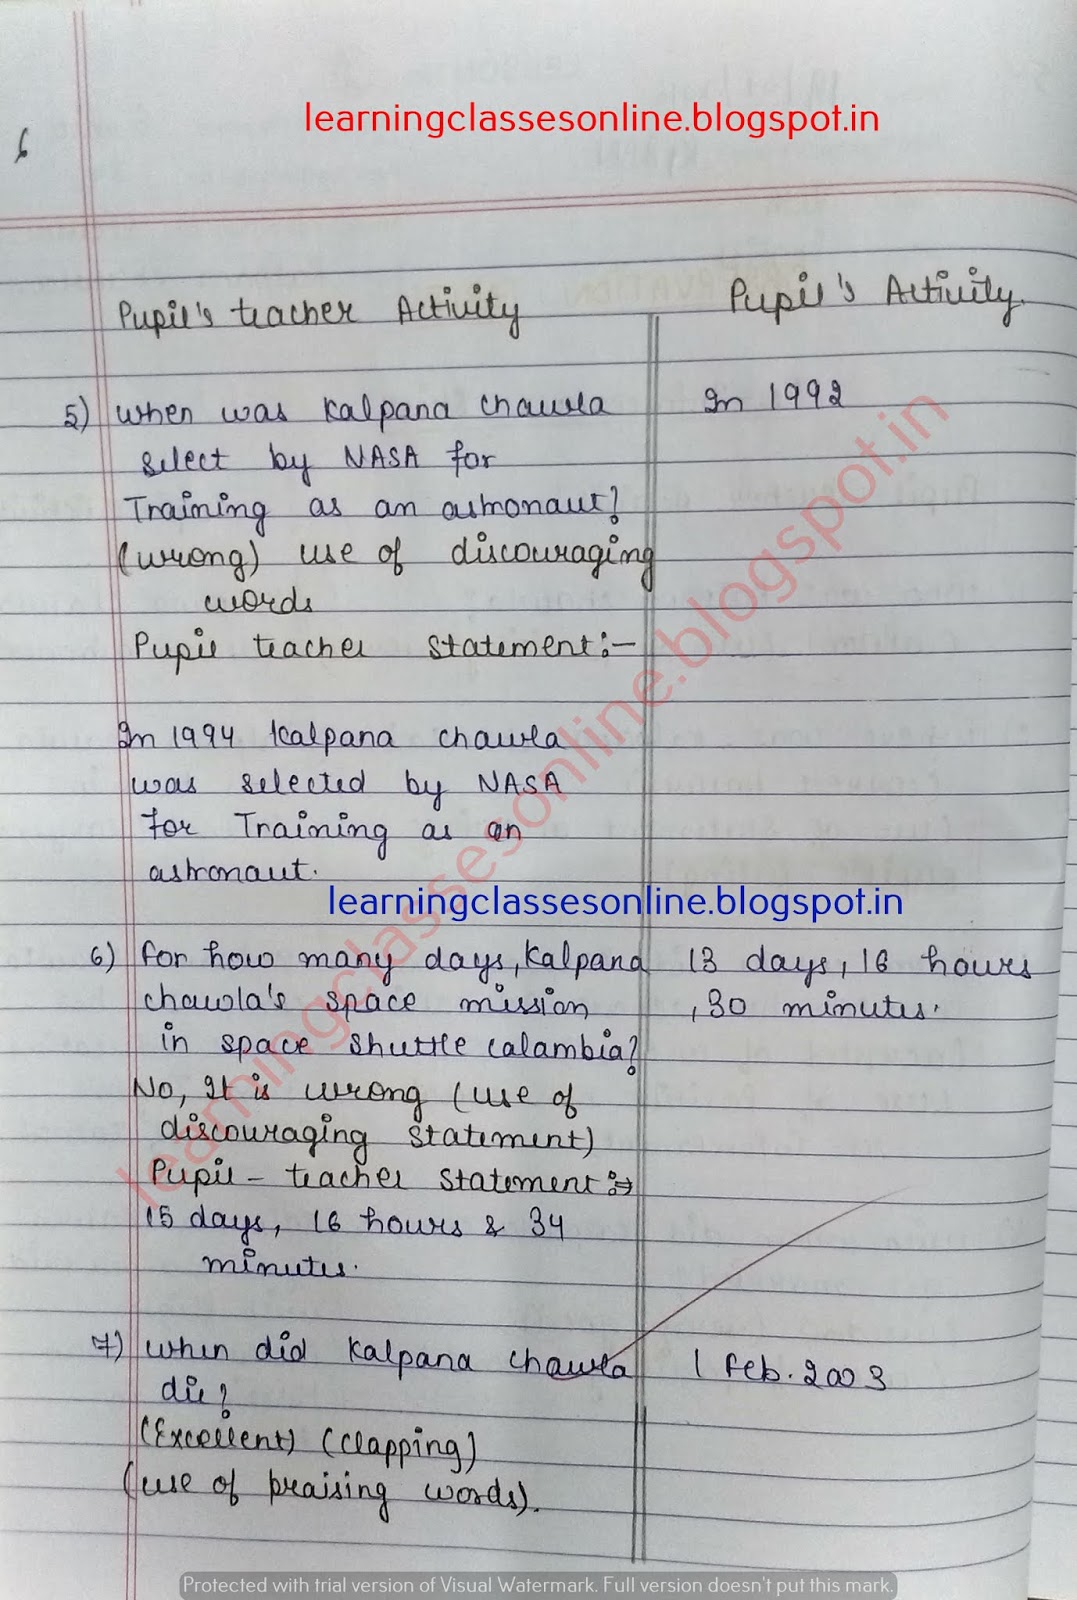 learningclassesonline.blogspot.in
6
Pupil's teacher Activity
Pupil's Activity.
5) when was Kalpana Chawla
In 1992
select by NASA for
Training as an astronaut?
(wrong) use of discouraging
words
Pupil teacher statement:-
In 1994 Kalpana chawla
was selected by NASA
for Training as an
astronaut.
learningclassesonline.blogspot.in
6) for how many days, Kalpana
13 days, 16 hours
chawla's space mission
, 30 minutes.
in space shuttle calambia?
No, It is wrong (use of
discouraging statement)
Pupil - teacher statement :⇒
15 days, 16 hours & 34
minutes.
7) when did Kalpana chawla
1 Feb. 2003
die?
(Excellent) (clapping)
(use of praising words).
learningclassesonline.blogspot.in
Protected with trial version of Visual Watermark. Full version doesn't put this mark.